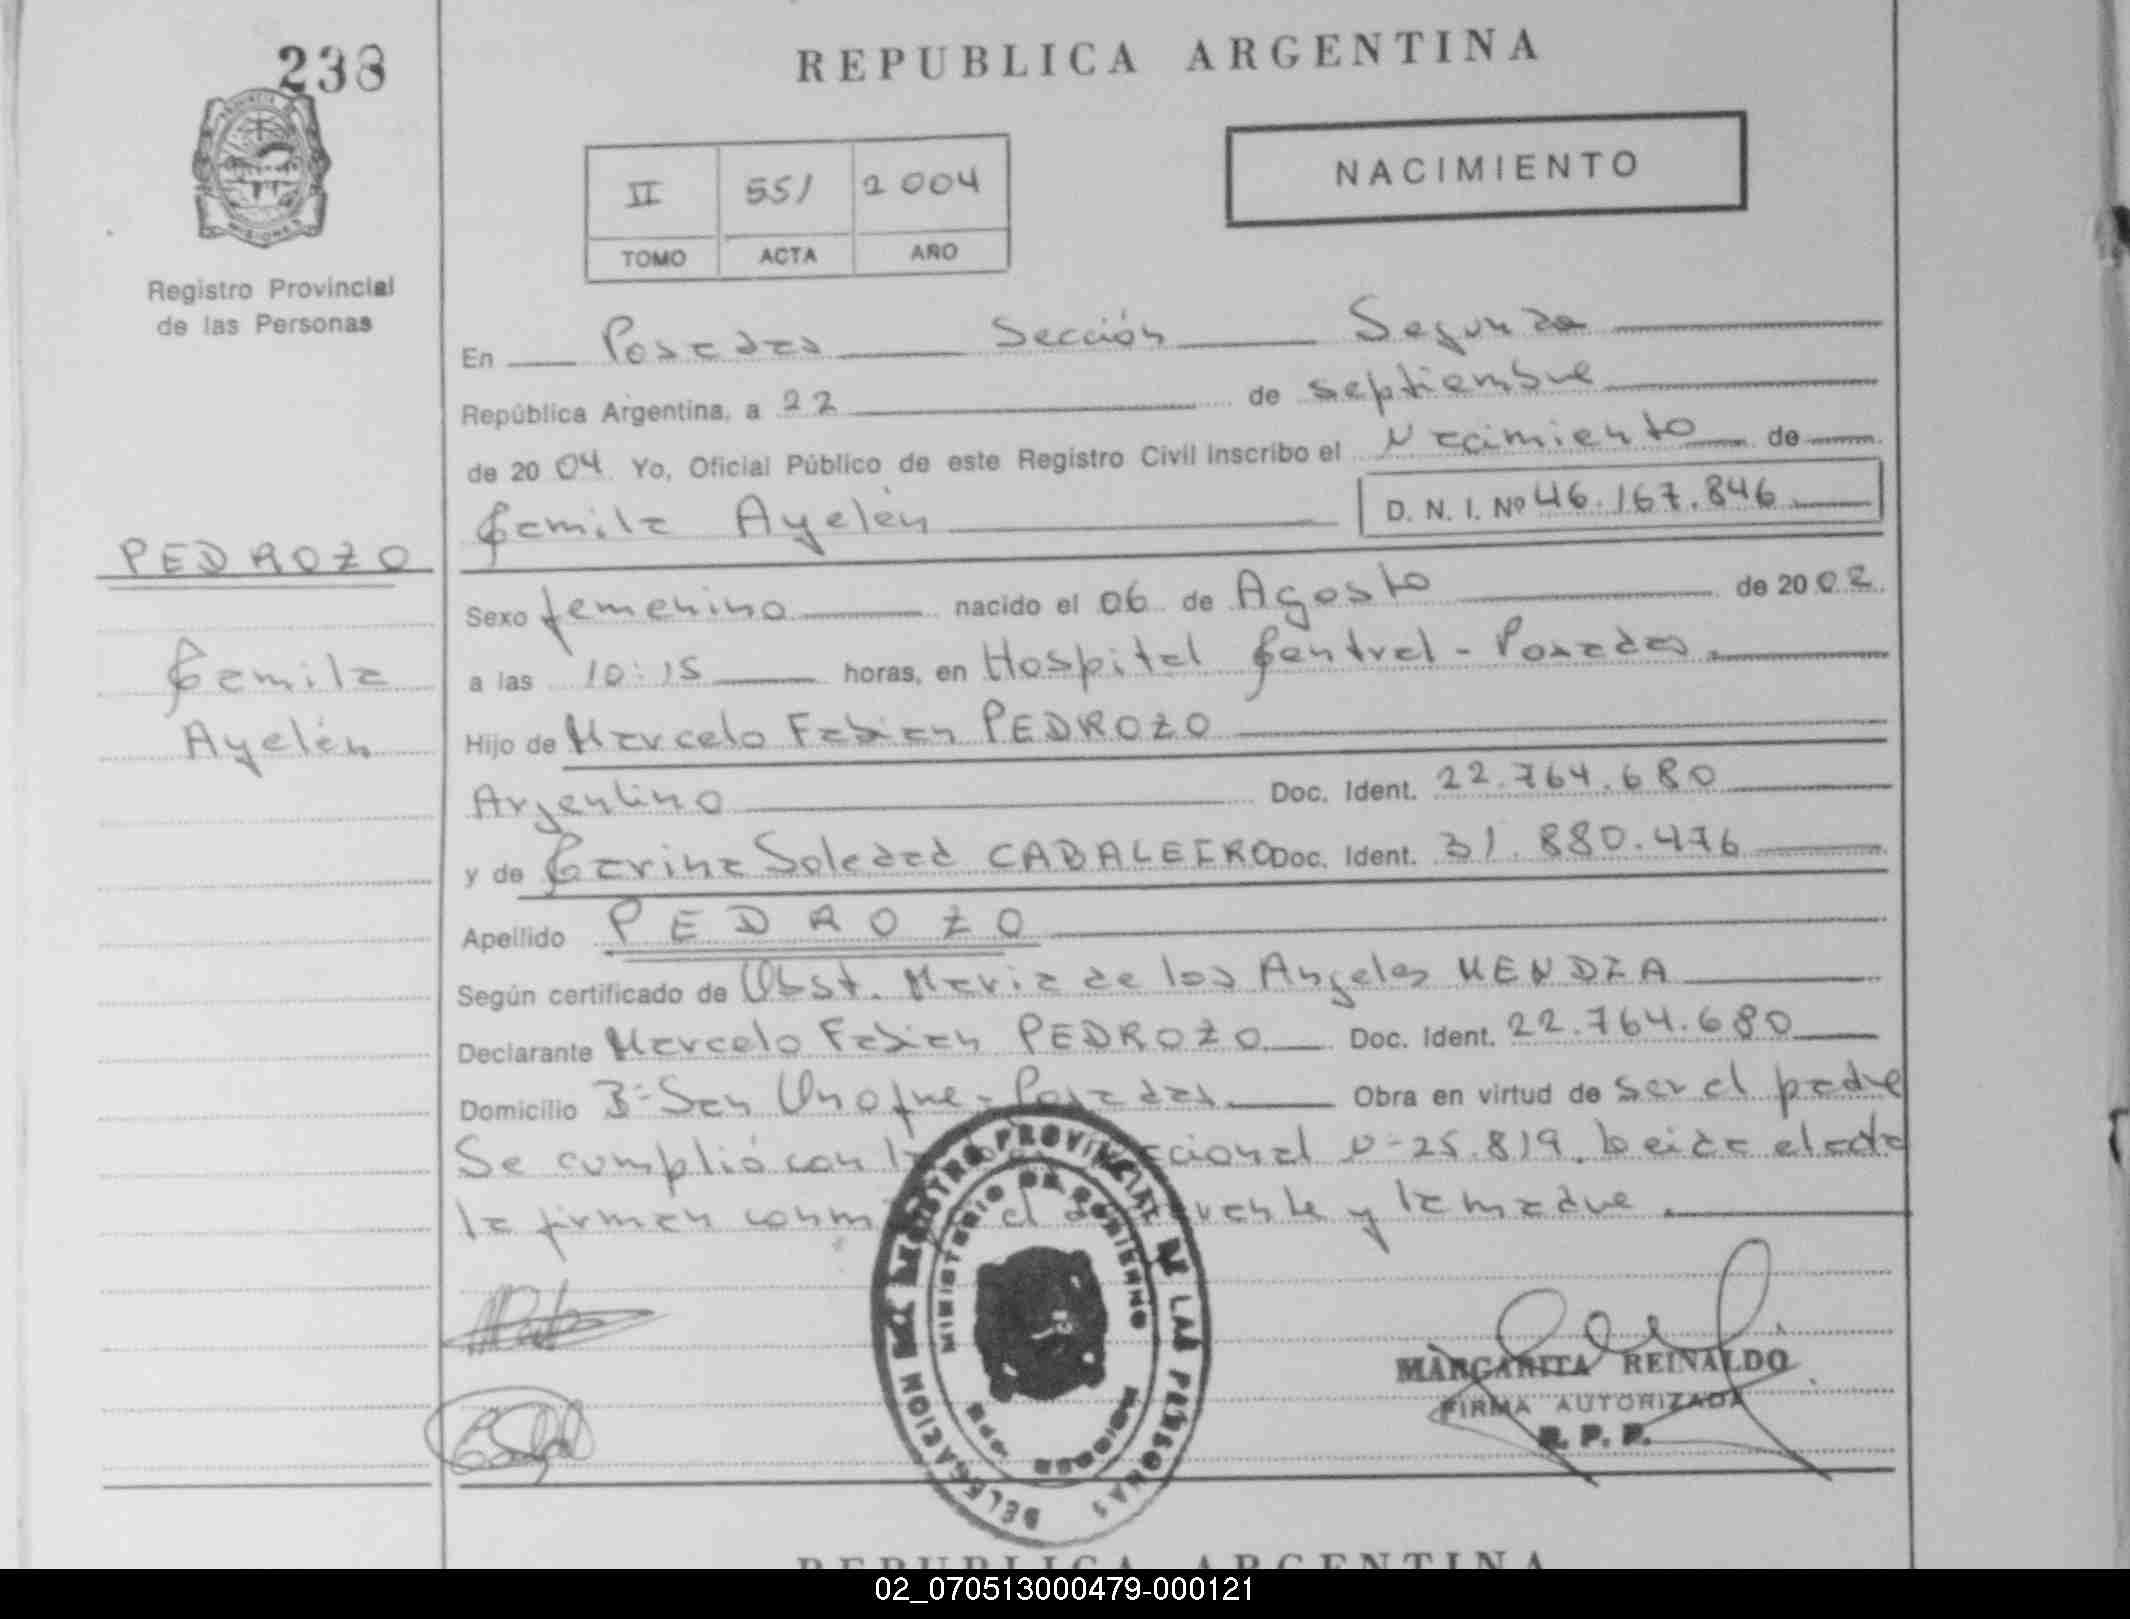 238
REPUBLICA ARGENTINA
NACIMIENTO
II 551 2004
TOMO ACTA AÑO
Registro Provincial
de las Personas
En Posadas Sección Segunda
República Argentina, a 22 de septiembre
de 2004 Yo, Oficial Público de este Registro Civil inscribo el Nacimiento de
Camila Ayelén D. N. I. Nº 46.167.846
PEDROZO
Camila
Ayelén
Sexo femenino nacido el 06 de Agosto de 2002
a las 10:15 horas, en Hospital Central - Posadas.
Hijo de Marcelo Fabian PEDROZO
Argentino Doc. Ident. 22.764.680
y de Carina Soledad CABALEIRO Doc. Ident. 31.880.476
Apellido PEDROZO
Según certificado de Obst. Maria de los Angeles
Declarante Marcelo Fabian PEDROZO Doc. Ident. 22.764.680
Domicilio Bº San Onofre - Posadas. Obra en virtud de ser el padre
Se cumplió con nº 25.819. Leida el acta
la firman el y la madre.
DELEGACION REGISTRO PROVINCIAL DE LAS PERSONAS
MINISTERIO DE GOBIERNO
MISIONES
MARGARITA REINALDO
FIRMA AUTORIZADA
R. P. P.
REPUBLICA ARGENTINA
02_070513000479-000121